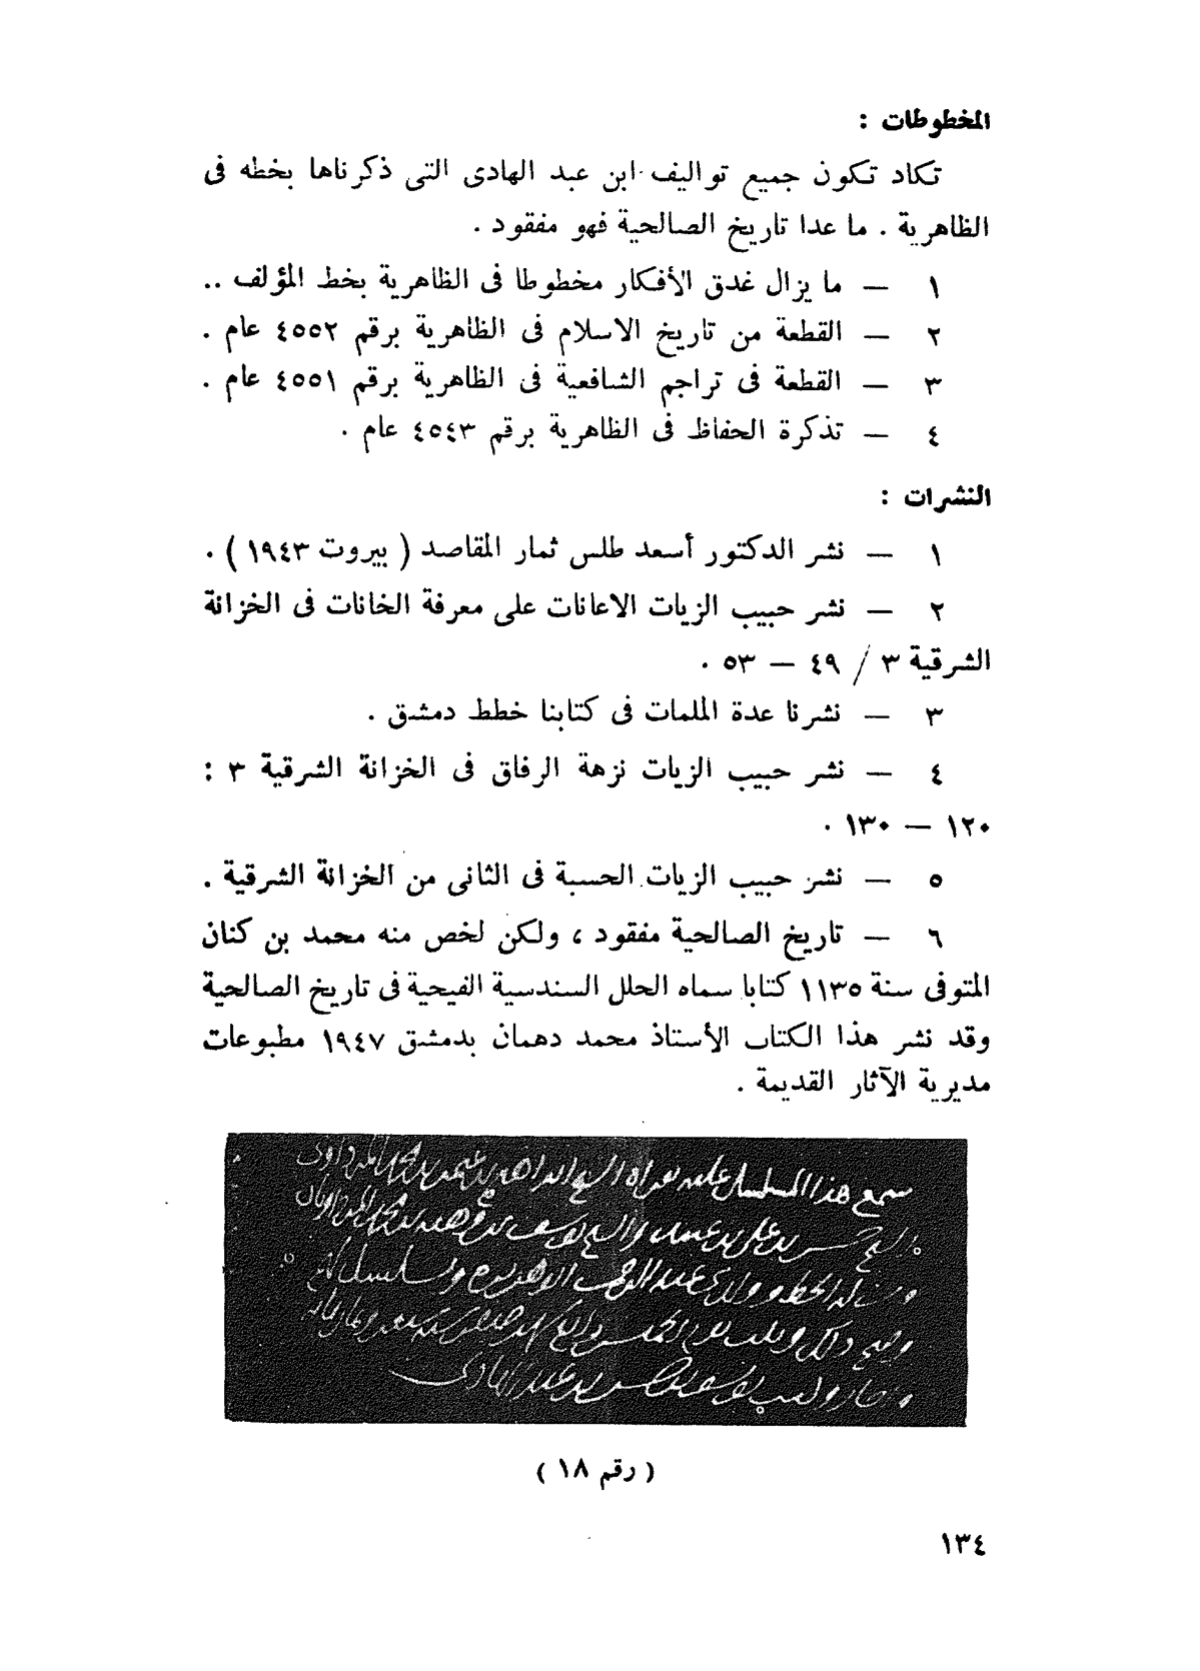 المخطوطات :
تكاد تكون جميع تواليف ابن عبد الهادى التى ذكرناها بخطه فى
الظاهرية . ما عدا تاريخ الصالحية فهو مفقود .
١ — ما يزال غدق الأفكار مخطوطا فى الظاهرية بخط المؤلف ..
٢ — القطعة من تاريخ الاسلام فى الظاهرية برقم ٤٥٥٢ عام .
٣ — القطعة فى تراجم الشافعية فى الظاهرية برقم ٤٥٥١ عام .
٤ — تذكرة الحفاظ فى الظاهرية برقم ٤٥٤٣ عام .
النشرات :
١ — نشر الدكتور أسعد طلس ثمار المقاصد ( بيروت ١٩٤٣ ) .
٢ — نشر حبيب الزيات الاعانات على معرفة الخانات فى الخزانة
الشرقية ٣ / ٤٩ — ٥٣ .
٣ — نشرنا عدة الملمات فى كتابنا خطط دمشق .
٤ — نشر حبيب الزيات نزهة الرفاق فى الخزانة الشرقية ٣ :
١٢٠ — ١٣٠ .
٥ — نشر حبيب الزيات الحسبة فى الثانى من الخزانة الشرقية .
٦ — تاريخ الصالحية مفقود ، ولكن لخص منه محمد بن كنان
المتوفى سنة ١١٣٥ كتابا سماه الحلل السندسية الفيحية فى تاريخ الصالحية
وقد نشر هذا الكتاب الأستاذ محمد دهمان بدمشق ١٩٤٧ مطبوعات
مديرية الآثار القديمة .
سمع هذا المسلسل
بن عبد الهادى
( رقم ١٨ )
١٣٤